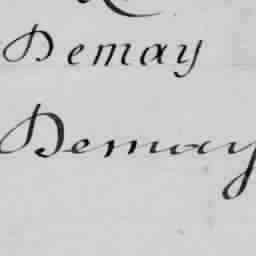 Demay
Demay